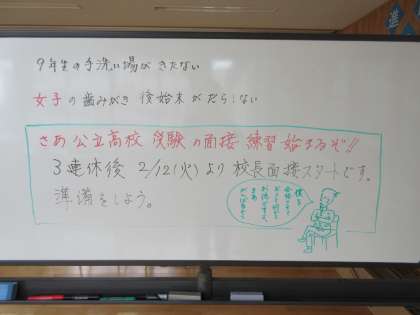 9年生の手洗い場がきたない
女子の歯みがき 後始末がだらしない
さあ公立高校 受験の面接 練習始まるぞ!!
3連休後 2/12(火)より校長面接スタートです。
準備をしよう。
進